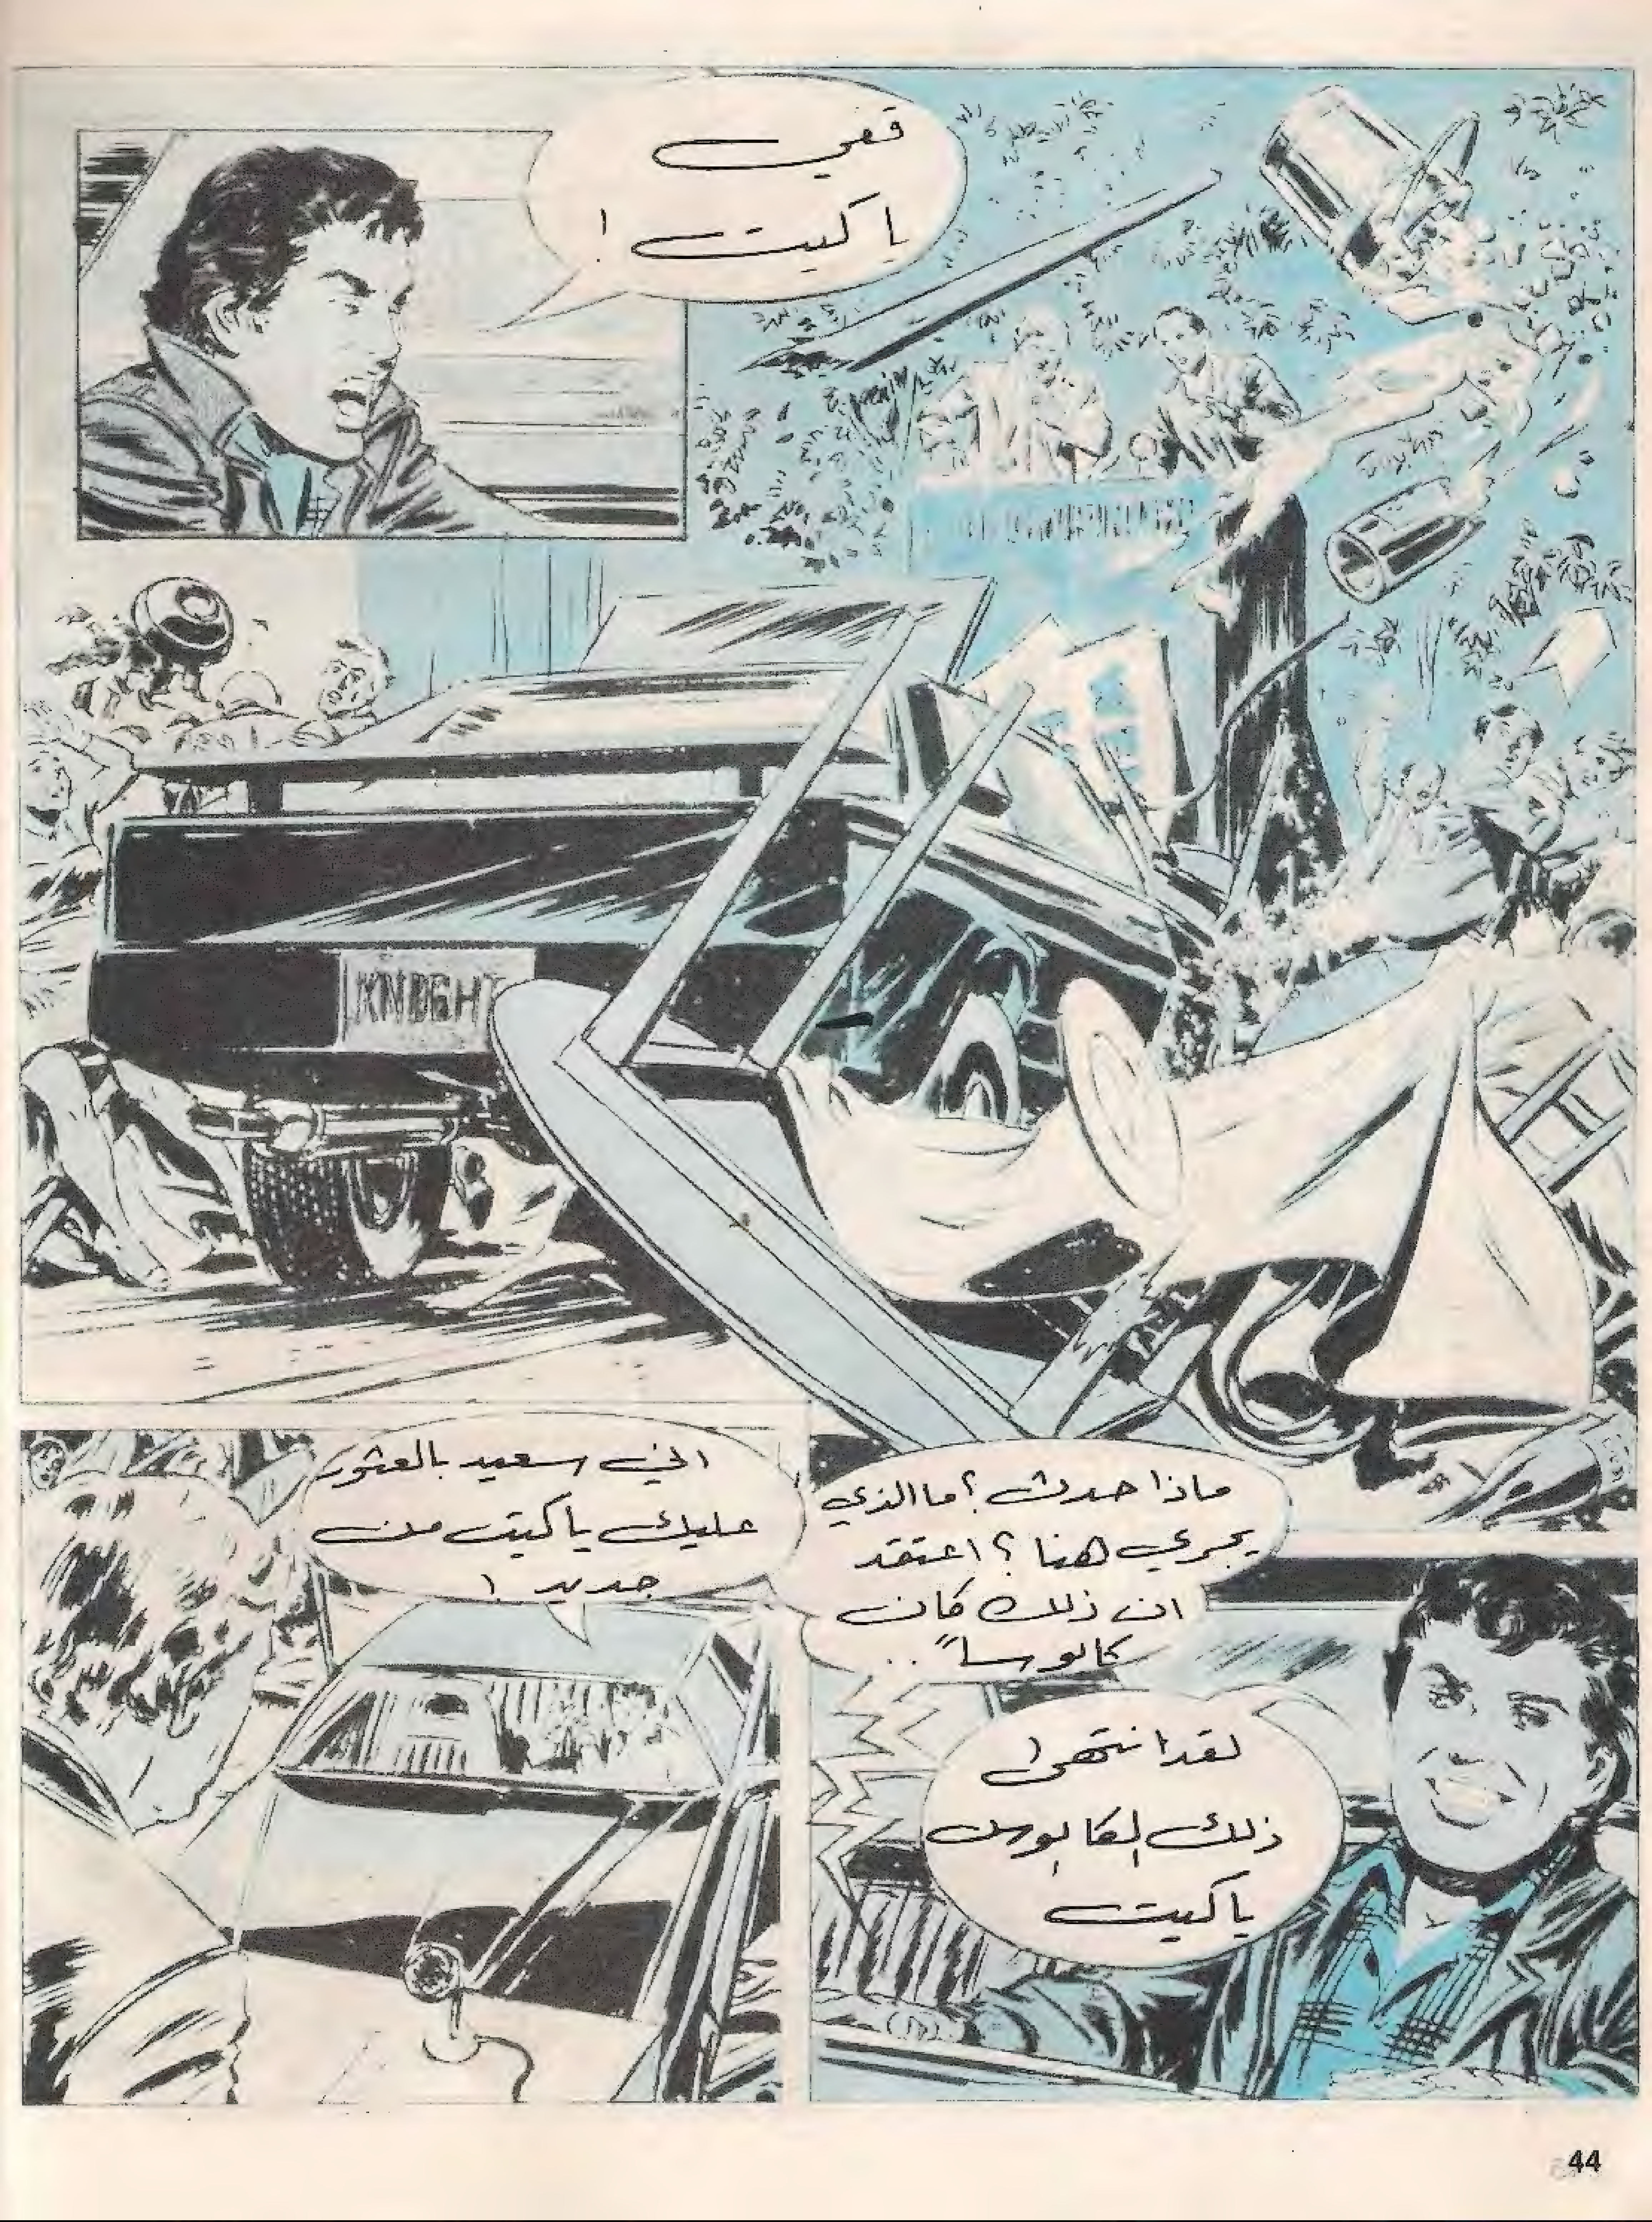 قفي
يا كيت !
KNIGHT
ماذا حدث ؟ ما الذي
يجري هنا ؟ اعتقد
ان ذلك كان
كابوساً ..
لقد انتهى
ذلك الكابوس
يا كيت
اني سعيد بالعثور
عليك يا كيت من
جديد !
44